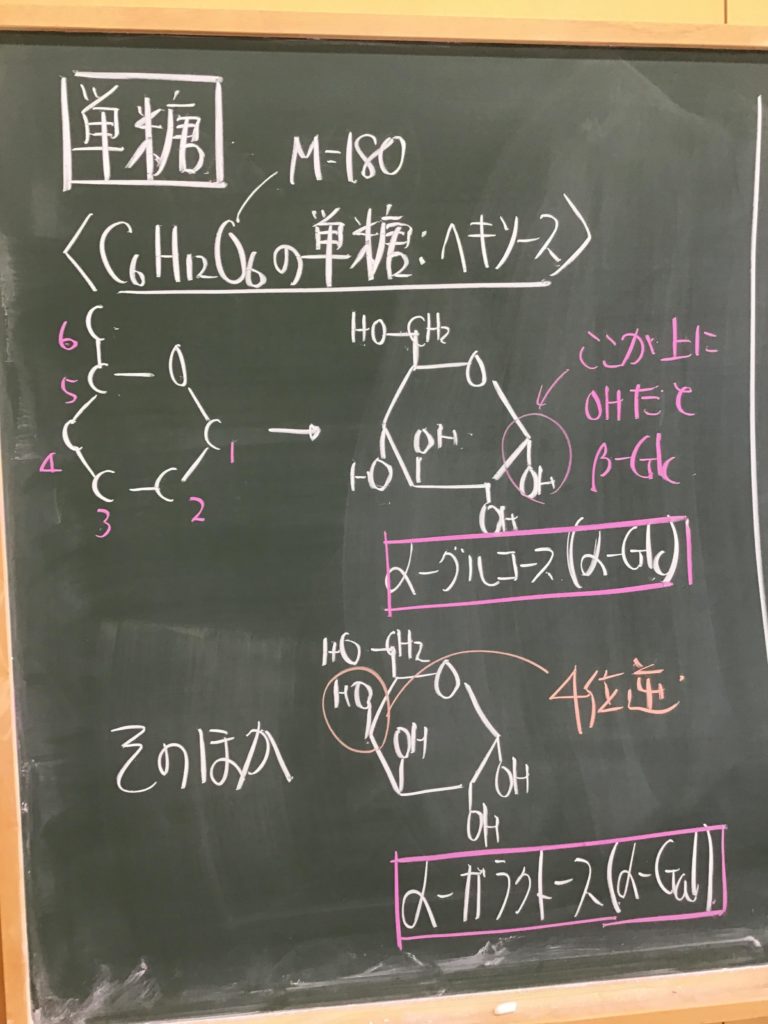 単糖
M=180
〈C₆H₁₂O₆の単糖:ヘキソース〉
C
6
C
5
O
C
4
C
1
C
3
C
2
→
HO-CH₂
O
OH
HO
OH
OH
ここが上に
OHだと
β-Glc
α-グルコース(α-Glc)
そのほか
HO-CH₂
HO
O
OH
OH
OH
4位逆
α-ガラクトース(α-Gal)